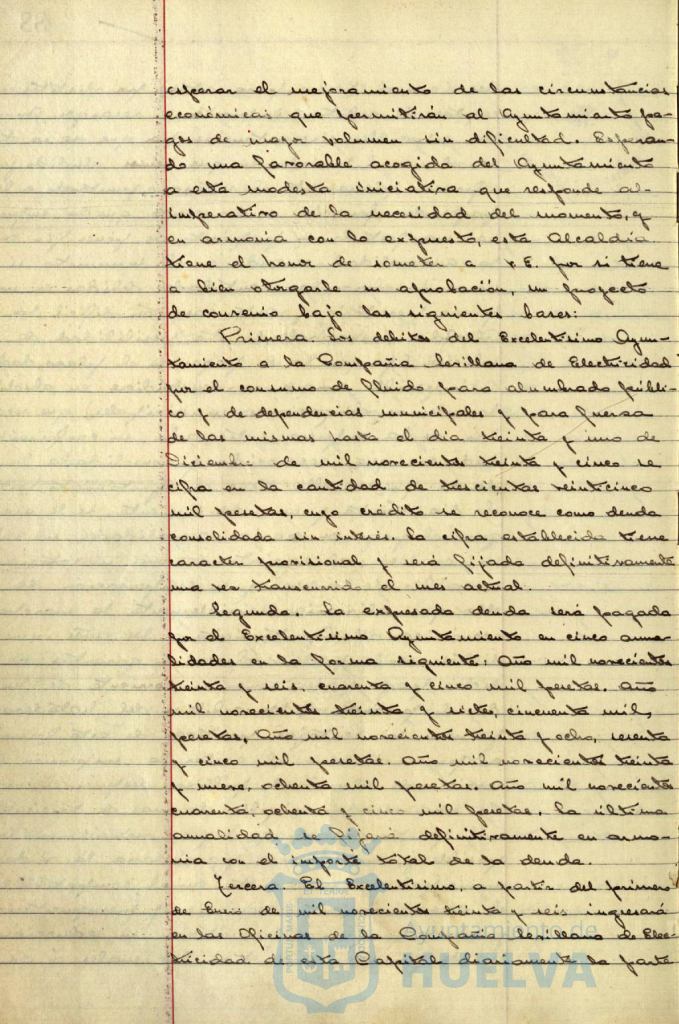 esperar el mejoramiento de las circunstancias
económicas que permitirán al Ayuntamiento pa-
gos de mayor volumen sin dificultad. Esperan-
do una favorable acogida del Ayuntamiento
a esta modesta iniciativa que responde al
imperativo de la necesidad del momento, y
en armonía con lo expuesto, esta Alcaldía
tiene el honor de someter a V.E. por si tiene
a bien otorgarle su aprobación, un proyecto
de convenio bajo las siguientes bases:
Primera. Los débitos del Excelentísimo Ayun-
tamiento a la Compañía Sevillana de Electricidad
por el consumo de fluido para alumbrado públi-
co y de dependencias municipales y para fuerza
de las mismas hasta el día treinta y uno de
Diciembre de mil novecientos treinta y cinco se
cifra en la cantidad de trescientas veinticinco
mil pesetas, cuyo crédito se reconoce como deuda
consolidada sin interés. La cifra establecida tiene
caracter provisional y será fijada definitivamente
una vez transcurrido el mes actual.
Segunda. La expresada deuda será pagada
por el Excelentísimo Ayuntamiento en cinco anua-
lidades en la forma siguiente: Año mil novecientos
treinta y seis, cuarenta y cinco mil pesetas. Año
mil novecientos treinta y siete, cincuenta mil
pesetas. Año mil novecientos treinta y ocho, sesenta
y cinco mil pesetas. Año mil novecientos treinta
y nueve, ochenta mil pesetas. Año mil novecientos
cuarenta, ochenta y cinco mil pesetas. La última
anualidad se fijará definitivamente en armo-
nía con el importe total de la deuda.
Tercera. El Excelentísimo, a partir del primero
de Enero de mil novecientos treinta y seis ingresará
en las Oficinas de la Compañía Sevillana de Elec-
tricidad de esta Capital diariamente la parte
Ayuntamiento de
HUELVA